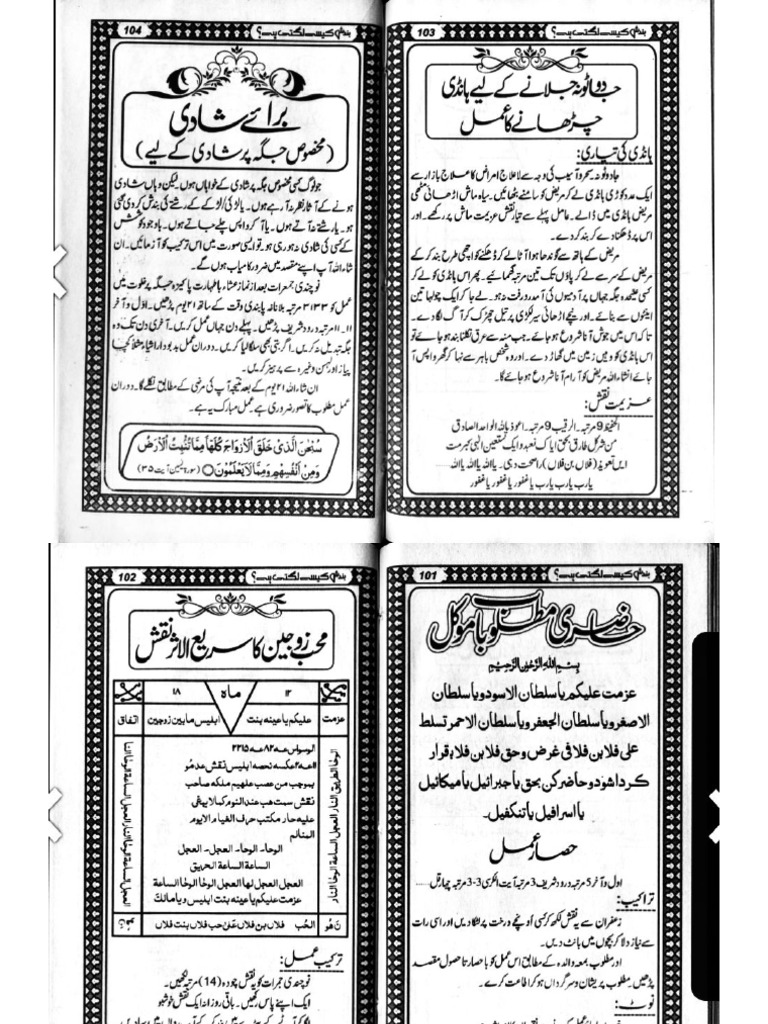 بندش کیسے لگتی ہے؟ 103
جادو ٹونہ جلانے کے لیے ہانڈی
چڑھانے کا عمل
ہانڈی کی تیاری:
جادو ٹونہ سحر و آسیب کی وجہ سے لاعلاج امراض کا علاج بازار سے
ایک عدد کوری ہانڈی لے کر مریض کو سامنے بٹھائیں۔ سیاہ ماش اڑھائی مٹھی
مریض ہانڈی میں ڈالے۔ عامل پہلے سے تیار نقش عزیمت ماش پر رکھے۔ اور
اس پر ڈھکنا دے کر بند کر دے۔
مریض کے ہاتھ سے گوندھا ہوا آٹا لے کر ڈھکنے کو اچھی طرح بند کر کے
مریض کے سر سے لے کر پاؤں تک تین مرتبہ گھمائیے۔ پھر اس ہانڈی کو لے کر
کسی علیحدہ جگہ جہاں پر آدمیوں کی آمد و رفت نہ ہو۔ لے جا کر ایک چولہا تین
اینٹوں سے بنائے۔ اور نیچے اڑھائی سیر لکڑی پر تیل چھڑک کر آگ لگا دے۔
تا کہ اس میں جوش آنا شروع ہو جائے۔ جب منہ سے عرق نکلنا بند ہو جائے تو
اس ہانڈی کو وہیں زمین میں گھاڑ دے۔ اور وہ شخص باہر سے نہا کر گھر واپس آ
جائے انشاء اللہ مریض کو آرام آنا شروع ہو جائے گا۔
عزیمت نقش:
الحفیظ 9 مرتبہ۔ الرقیب 9 مرتبہ۔ اعوذ باللہ الواحد الصادق
من شر کل طارق بحق ایاک نعبد و ایاک نستعین الہی بحرمت
ایں تعویذ (فلاں بن فلاں) را صحت دہی۔ یا اللہ یا اللہ یا اللہ
یا رب یا رب یا رب یا غفور یا غفور یا غفور
بندش کیسے لگتی ہے؟ 104
برائے شادی
(مخصوص جگہ پر شادی کے لیے)
جو لوگ کسی مخصوص جگہ پر شادی کے خواہاں ہوں۔ لیکن وہاں شادی
ہونے کے آثار نظر نہ آ رہے ہوں۔ یا لڑکی / لڑکے کے رشتے کی بندش کر دی گئی
ہو۔ یا رشتے نہ آتے ہوں۔ یا آ کر واپس چلے جاتے ہوں۔ باوجود کوشش
کے کسی کی شادی نہ ہو رہی ہو۔ تو ایسی صورت میں اس ترکیب کو آزمائیں۔ ان
شاء اللہ آپ اپنے مقصد میں ضرور کامیاب ہوں گے۔
نوچندی جمعرات بعد از نماز عشاء باطہارت پاکیزہ جگہ پر خلوت میں
عمل کو 3133 مرتبہ بلا ناغہ پابندی وقت کے ساتھ 21 یوم پڑھیں۔ اول و آخر
11۔ 11 مرتبہ درود شریف پڑھیں۔ پہلے دن جہاں عمل کریں۔ آخری دن تک وہ
جگہ تبدیل نہ کریں۔ اگر بتی بھی سلگا لیا کریں۔ دوران عمل بدبودار اشیاء مثلاً کچا
پیاز اور لہسن وغیرہ سے پرہیز کریں۔
ان شاء اللہ 21 یوم کے بعد نتیجہ آپ کی مرضی کے مطابق نکلے گا۔ دوران
عمل مطلوب کا تصور ضروری ہے عمل مبارک یہ ہے۔
سُبْحٰنَ الَّذِیْ خَلَقَ الْاَزْوَاجَ کُلَّهَا مِمَّا تُنْبِتُ الْاَرْضُ
وَمِنْ اَنْفُسِهِمْ وَمِمَّا لَا یَعْلَمُوْنَ
بندش کیسے لگتی ہے؟ 101
حاضری مطلوب باموکل
بِسْمِ اللهِ الرَّحْمٰنِ الرَّحِیْمِ
عزمت علیکم یا سلطان الاسود و یا سلطان
الاصغر و یا سلطان الجعفر و یا سلطان الاحمر تسلط
علی فلاں بن فلاں فی غرض و حق فلاں بن فلاں بقرار
کردا شود و حاضر کن بحق یا جبرائیل یا میکائیل
یا اسرافیل یا تنکفیل۔
حصار عمل
اول و آخر 5 مرتبہ درود شریف 3 مرتبہ آیت الکرسی 3-3 مرتبہ چار قل۔
تراکیب:
زعفران سے یہ نقش لکھ کر کسی اونچے درخت پر لٹکا دیں اور اسی رات
سے نیاز دلا کر بچوں میں بانٹ دیں۔
اور مطلوب بمعہ والدہ کے مطابق اس عمل کو باحصار تا حصول مقصد
پڑھیں۔ مطلوب پریشان و سرگرداں ہو کر اطاعت کرے۔
نوٹ:
بندش کیسے لگتی ہے؟ 102
محب زوجین کا سریع الاثر نقش
۱۲ ماہ ۱۸
عزمت علیکم یا عینہ بنت ابلیس مابین زوجین اتفاق
نقش سمت هب عند النوم کما لا یبقی
علیه حار مکتب حرف القیام الایوم
المنانم
الوحا۔ الوحا۔ العجل۔ العجل
الساعة الساعة الحریق
العجل العجل لها العجل الوحا الوحا الساعة
عزمت علیکم یا عینه بنت ابلیس و یا مالک
الحب فلاں بن فلاں علی حب فلاں بنت فلاں
ترکیب عمل:
نوچندی جمعرات کو یہ نقش چودہ (14) مرتبہ لکھیں۔
ایک اپنے پاس رکھیں۔ باقی روزانہ ایک نقش خوشبو